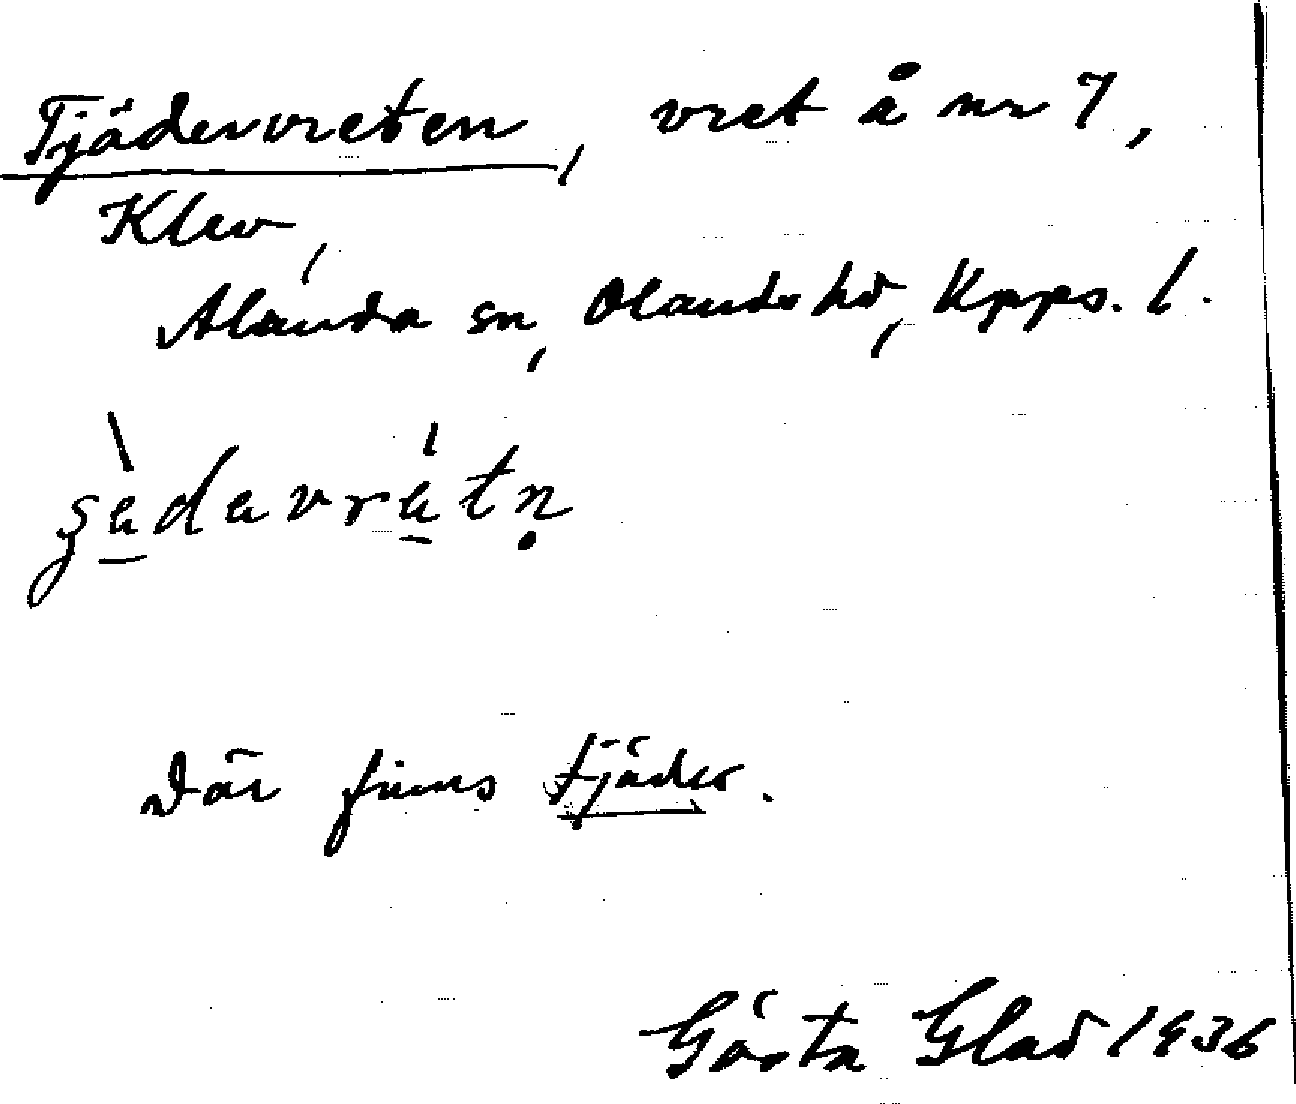 Tjädervreten, vret å nr 7,
Klev,
Alunda sn, Olands hd, Upps. l.
Där finns tjäder.
Gösta Glad 1936